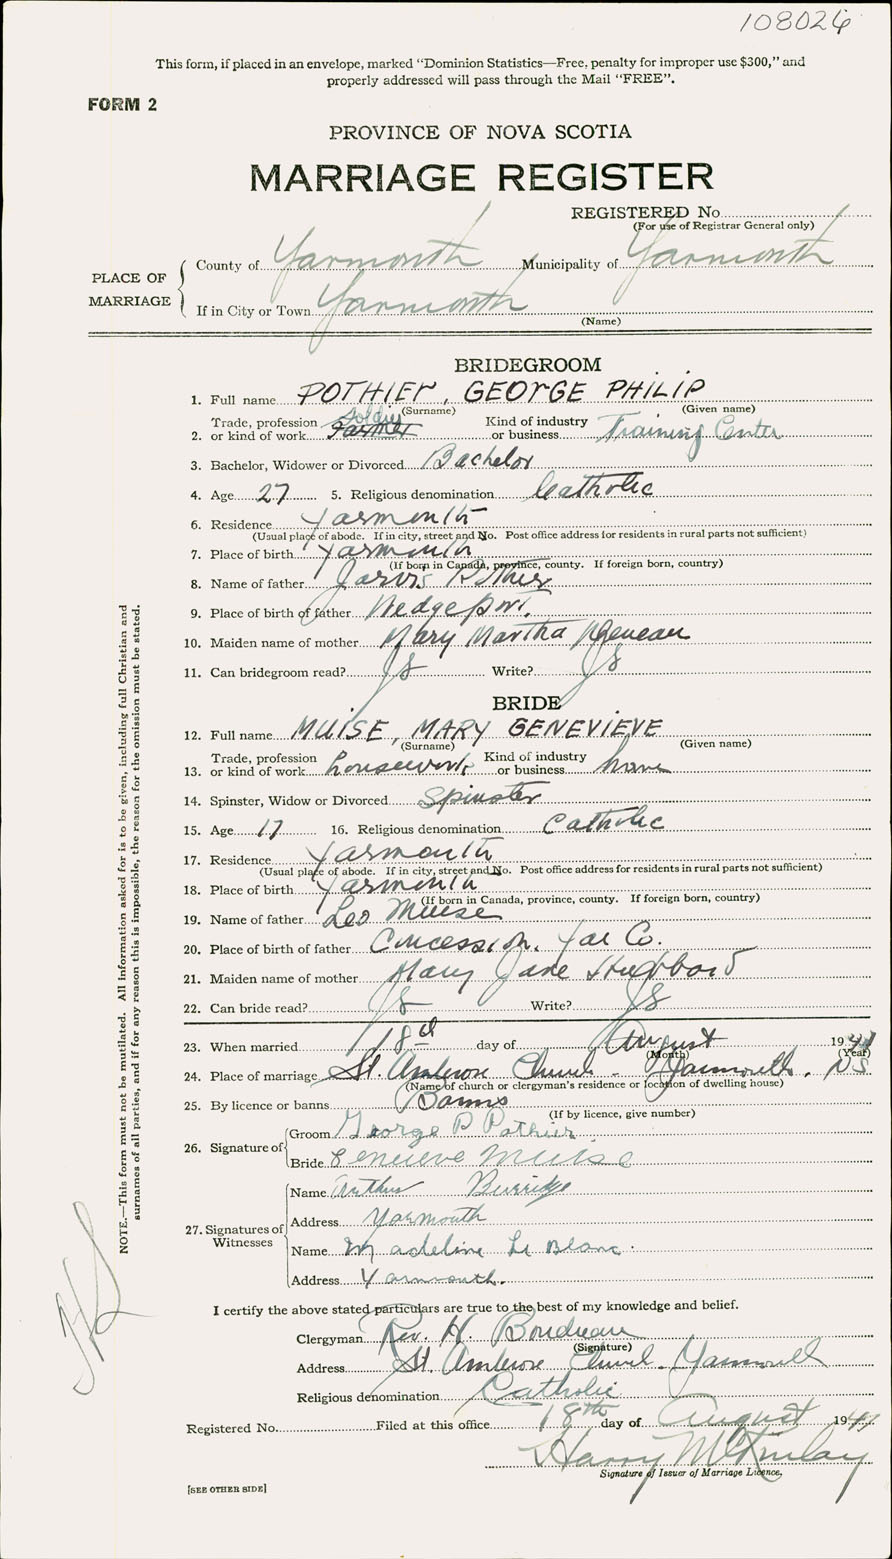 108026
This form, if placed in an envelope, marked "Dominion Statistics—Free, penalty for improper use $300," and
properly addressed will pass through the Mail "FREE".
FORM 2
PROVINCE OF NOVA SCOTIA
MARRIAGE REGISTER
REGISTERED No.
(For use of Registrar General only)
PLACE OF MARRIAGE
County of Yarmouth Municipality of Yarmouth
If in City or Town Yarmouth
(Name)
BRIDEGROOM
1. Full name POTHIER, GEORGE PHILIP
(Surname) (Given name)
2. Trade, profession or kind of work Soldier Farmer Kind of industry or business Training Center
3. Bachelor, Widower or Divorced Bachelor
4. Age 27 5. Religious denomination Catholic
6. Residence Yarmouth
(Usual place of abode. If in city, street and No. Post office address for residents in rural parts not sufficient)
7. Place of birth Yarmouth
(If born in Canada, province, county. If foreign born, country)
8. Name of father Jarvis Pothier
9. Place of birth of father Wedgeport.
10. Maiden name of mother Mary Martha
11. Can bridegroom read? Yes Write? Yes
BRIDE
12. Full name MUISE, MARY GENEVIEVE
(Surname) (Given name)
13. Trade, profession or kind of work housework Kind of industry or business home
14. Spinster, Widow or Divorced Spinster
15. Age 17 16. Religious denomination Catholic
17. Residence Yarmouth
(Usual place of abode. If in city, street and No. Post office address for residents in rural parts not sufficient)
18. Place of birth Yarmouth
(If born in Canada, province, county. If foreign born, country)
19. Name of father Leo Muise
20. Place of birth of father Concession, Yar Co.
21. Maiden name of mother Mary Jane Hubbard
22. Can bride read? Yes Write? Yes
23. When married 18th day of August 1941
(Month) (Year)
24. Place of marriage St. Ambrose Church - Yarmouth, NS
(Name of church or clergyman's residence or location of dwelling house)
25. By licence or banns Banns
(If by licence, give number)
26. Signature of
Groom George P Pothier
Bride Genevieve Muise
27. Signatures of Witnesses
Name Arthur Burridge
Address Yarmouth
Name Madeline Le Blanc.
Address Yarmouth.
I certify the above stated particulars are true to the best of my knowledge and belief.
Clergyman Rev. H. Boudreau
(Signature)
Address St. Ambrose Church - Yarmouth
Religious denomination Catholic
Registered No. Filed at this office 18th day of August 1941
Harry McKinlay
Signature of Issuer of Marriage Licence.
[SEE OTHER SIDE]
NOTE.—This form must not be mutilated. All Information asked for is to be given, including full Christian and
surnames of all parties, and if for any reason this is impossible, the reason for the omission must be stated.